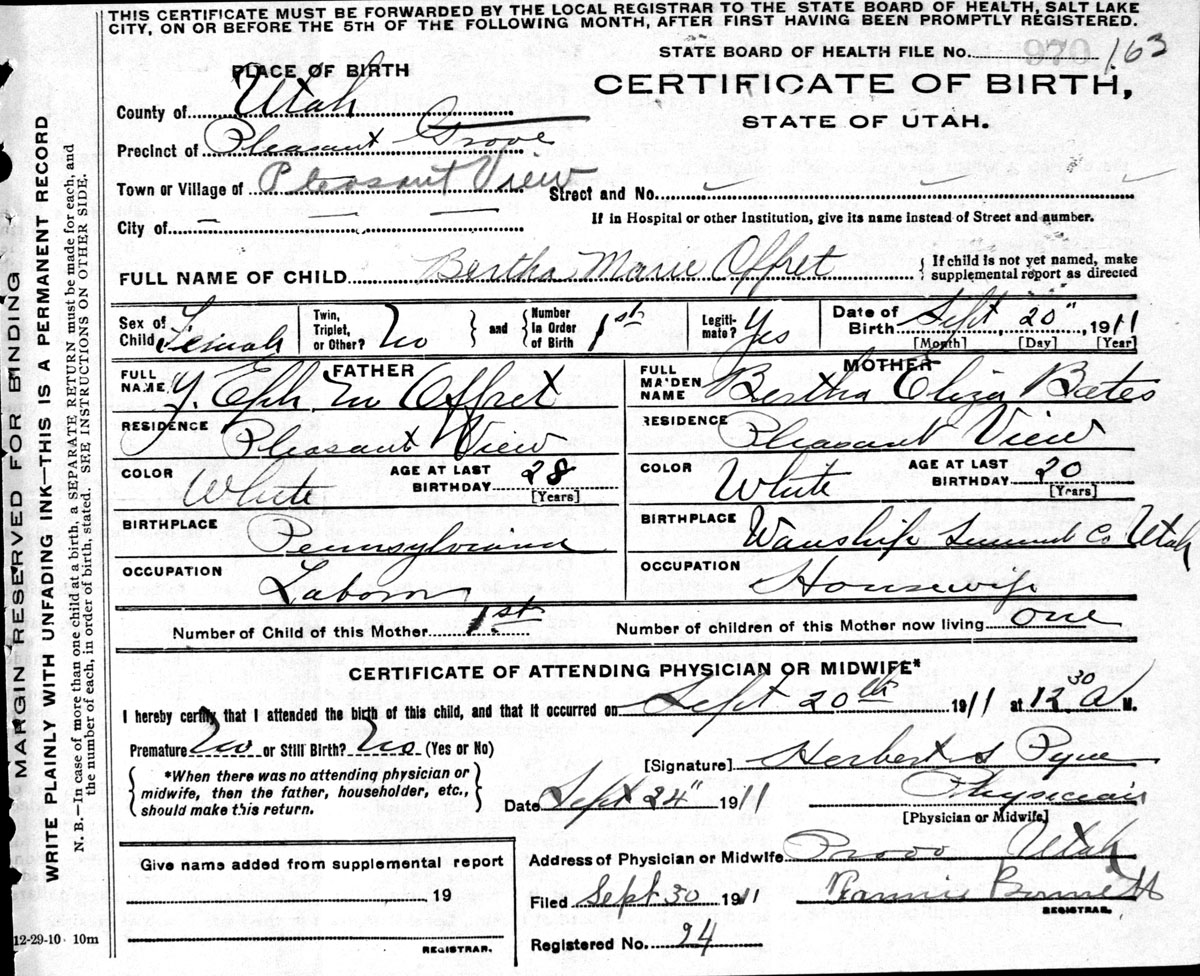 THIS CERTIFICATE MUST BE FORWARDED BY THE LOCAL REGISTRAR TO THE STATE BOARD OF HEALTH, SALT LAKE
CITY, ON OR BEFORE THE 5TH OF THE FOLLOWING MONTH, AFTER FIRST HAVING BEEN PROMPTLY REGISTERED.
STATE BOARD OF HEALTH FILE No. 970 163
PLACE OF BIRTH
CERTIFICATE OF BIRTH,
STATE OF UTAH.
County of Utah
Precinct of Pleasant Grove
Town or Village of Pleasant View Street and No.
City of
If in Hospital or other Institution, give its name instead of Street and number.
FULL NAME OF CHILD Bertha Marie Offret { If child is not yet named, make
supplemental report as directed
Sex of Child Female Twin, Triplet, or Other? No } and { Number In Order of Birth 1st Legiti-mate? Yes Date of Birth Sept, 20", 1911
[Month] [Day] [Year]
FATHER
FULL NAME Offret
RESIDENCE Pleasant View
COLOR White AGE AT LAST BIRTHDAY 28
[Years]
BIRTHPLACE Pennsylvania
OCCUPATION Laborer
MOTHER
FULL MAIDEN NAME Bertha Eliza Bates
RESIDENCE Pleasant View
COLOR White AGE AT LAST BIRTHDAY 20
[Years]
BIRTHPLACE Wanship Summit Co Utah
OCCUPATION Housewife
Number of Child of this Mother 1st Number of children of this Mother now living one
CERTIFICATE OF ATTENDING PHYSICIAN OR MIDWIFE*
I hereby certify that I attended the birth of this child, and that it occurred on Sept 20th 1911 at 12 30 A M.
Premature No or Still Birth? No (Yes or No)
[Signature] Herbert S Pyne
{ *When there was no attending physician or
midwife, then the father, householder, etc.,
should make this return. }
Date Sept 24" 1911 Physician
[Physician or Midwife]
Address of Physician or Midwife Provo Utah
Give name added from supplemental report
19
REGISTRAR.
Filed Sept 30 1911 Bennett
REGISTRAR.
Registered No. 24
12-29-10 10m
MARGIN RESERVED FOR BINDING
WRITE PLAINLY WITH UNFADING INK—THIS IS A PERMANENT RECORD
N. B.—In case of more than one child at a birth, a SEPARATE RETURN must be made for each, and
the number of each, in order of birth, stated. SEE INSTRUCTIONS ON OTHER SIDE.